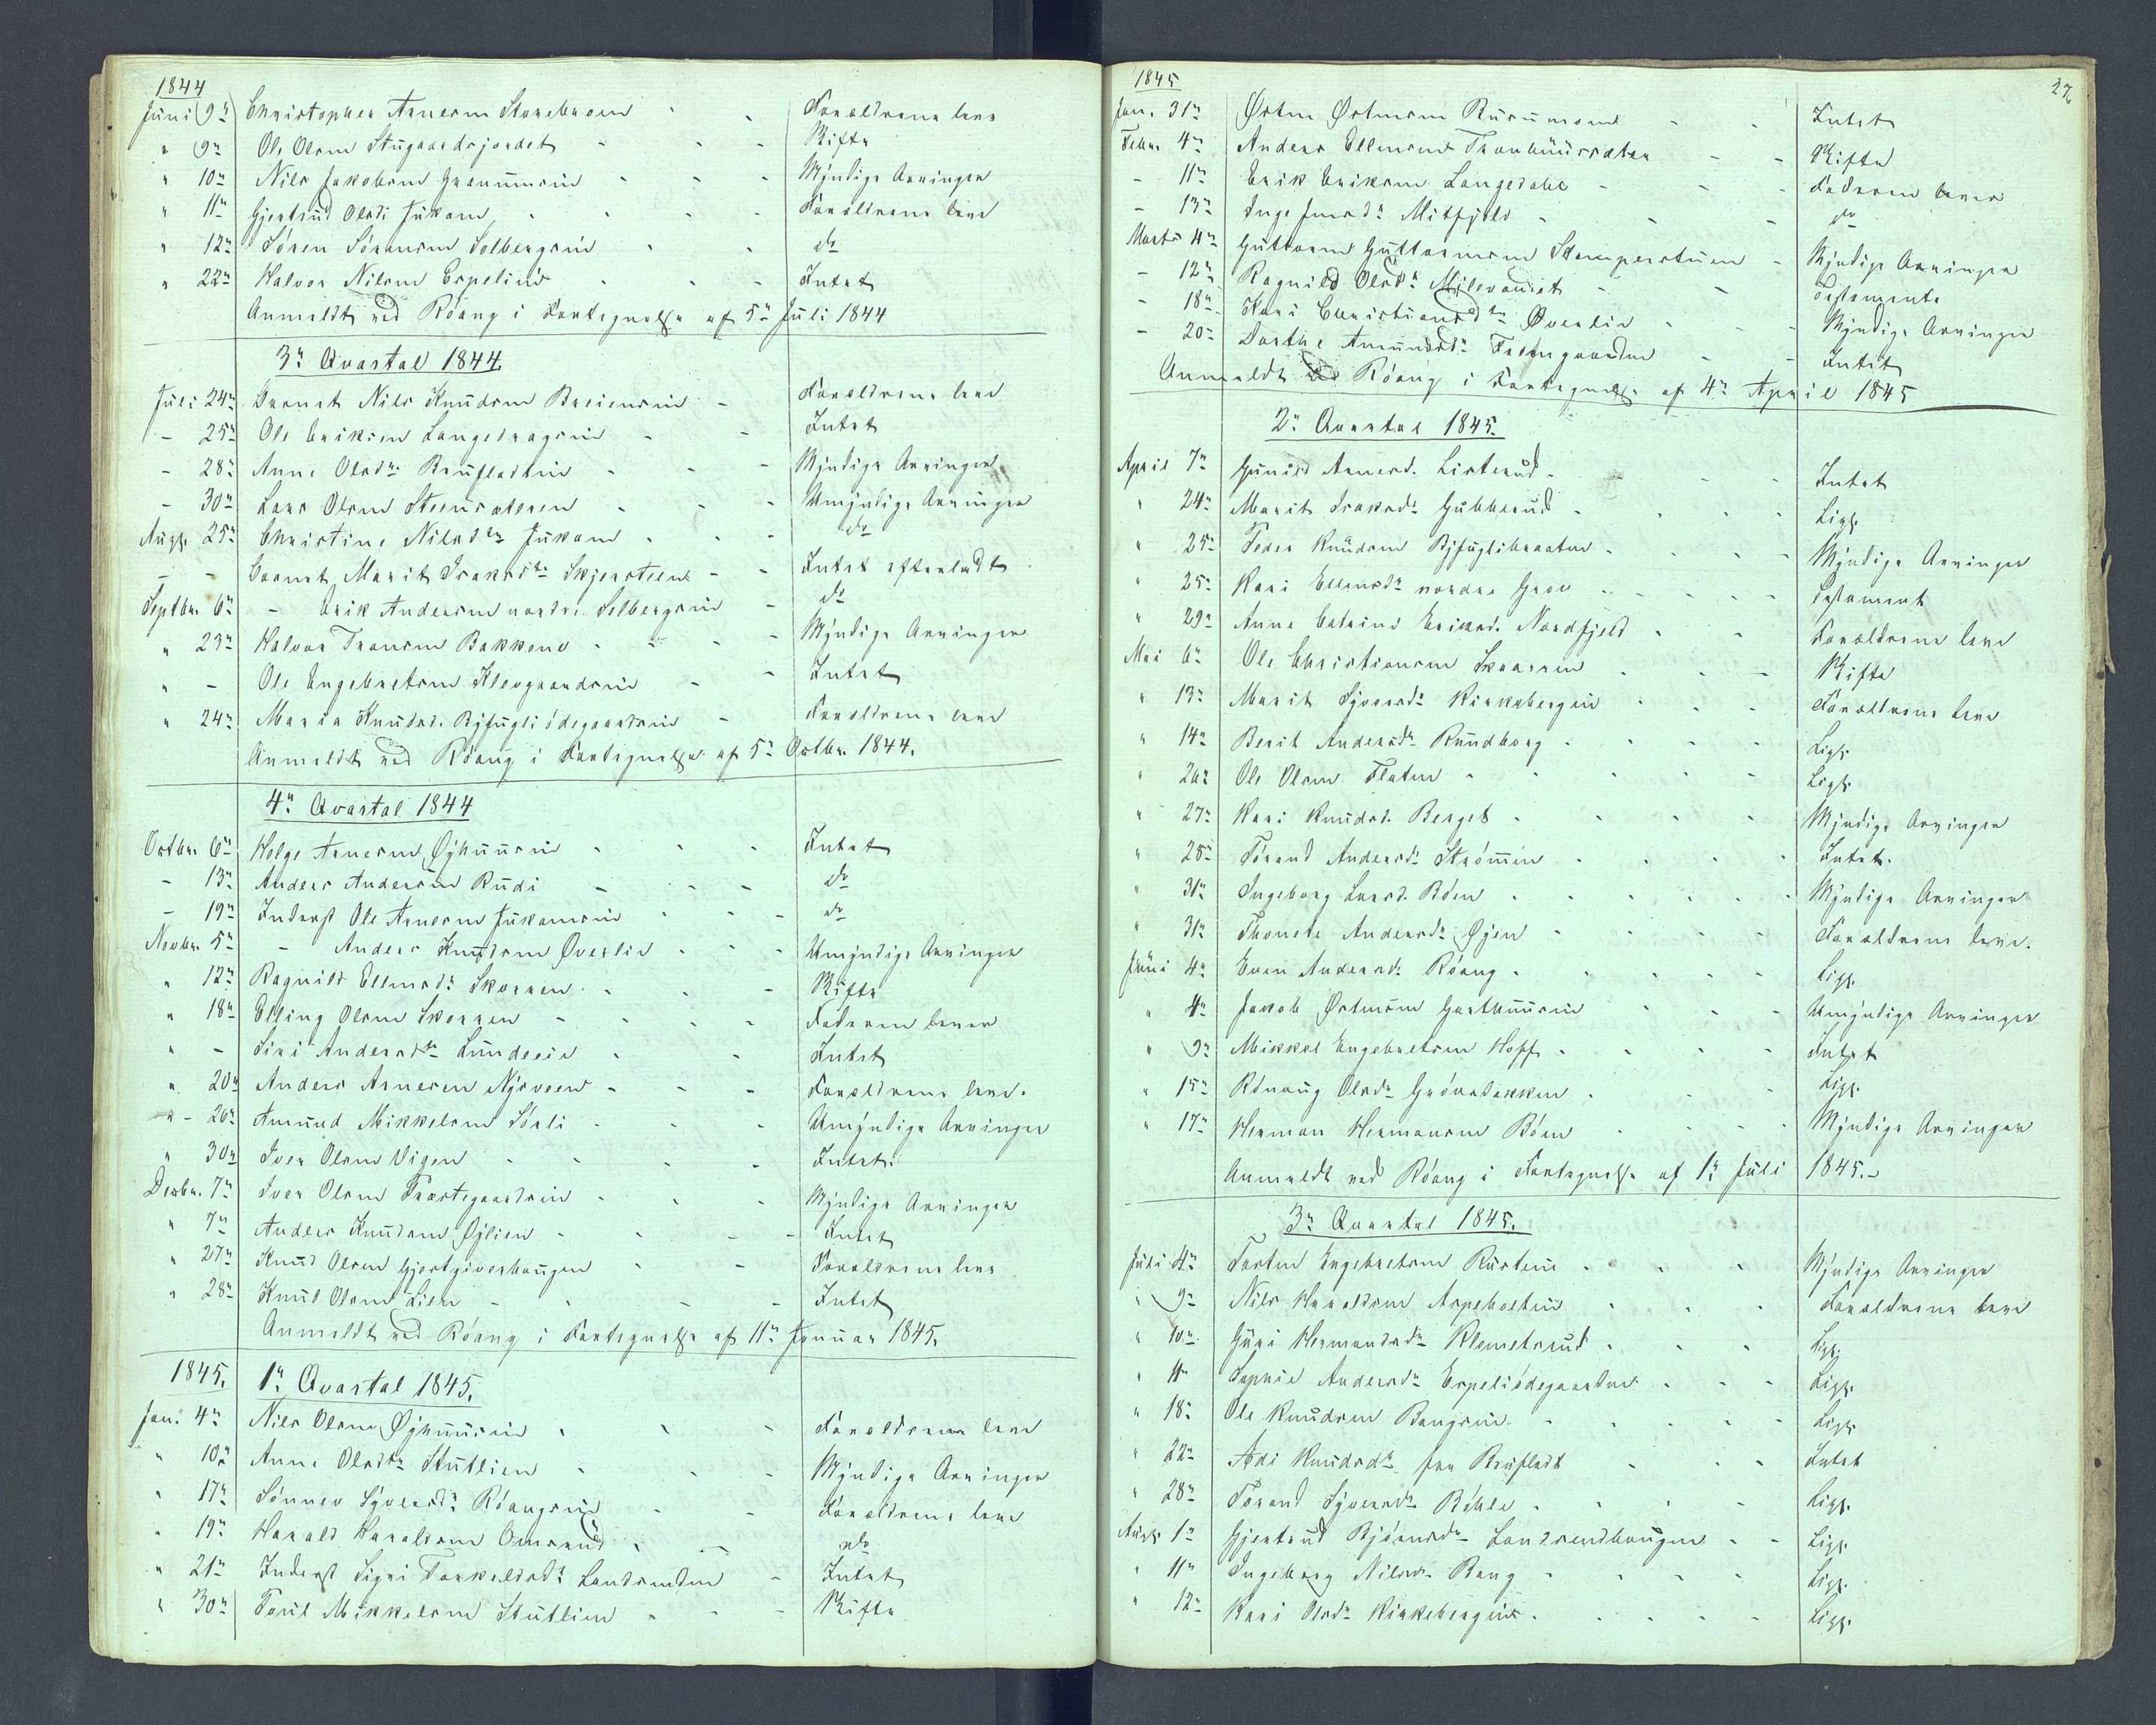 1844
Juni 9n Christopher Arnesen Storebraaen - - Forældrene leve
" 9n Ole Olsen Stugaardsjordet - - Skifte
" 10n Nils Jakobsen - - Myndige Arvinger
" 11n Gjertrud Olsdr Jukam - - Forældrene leve
" 12n Sören Sörensen Solbergseie - - do
" 22n Halvor Nilsen Espelind - - Intet
Anmeldt ved Röang i Fortegnelse af 5n Juli 1844
3n Qvartal 1844.
Juli 24n Barnet Nils Knudsen Breieneie - Forældrene leve
- 25n Ole Eriksen Langedrageie - - Intet
- 28n Anne Olsdr Brufladteie - - Myndige Arvinger
- 30n Lars Olsen Steensæteren - - Umyndige Arvinger
Augst 25n Christine Nilsdtr Jukam - - do
- - Barnet Marit Isaksdtr Skjersteen - - Intet efterladt
Septbr. 6n - Erik Andersen nordre Solbergseie - do
" 23n Halvor Bakkene - - Myndige Arvinger
" - Ole Engebretsen Klevgaardseie - - Intet
" 24n Maria Knudsd. Bjfugliödegaardseie - Forældrene leve
Anmeldt ved Röang i Fortegnelse af 5n Octbr. 1844.
4n Qvartal 1844
Octbr. 6n Helge Arnesen Øjhuuseie - - Intet
- 13n Anders Andersen Rudi - - do
- 19n Inderst Ole Arnesen Jukameie - - do
Novbr. 5n - Anders Knudsen Øverlie - - Umyndige Arvinger
" 12n Ragnild Ellensdr Skoaren - - Skifte
" 18n Elling Olsen Skoaren - - Faderen lever
" - Siri Andersdtr Lundeeie - - Intet
" 20n Anders Arnesen Nysveen - - Forældrene leve.
" - 26n Amund Mikkelsen Sörli - - Umyndige Arvinger
" 30n Iver Olsen Vigen - - Intet.
Decbr. 7n Iver Olsen Præstegaardseie - - Myndige Arvinger
" 7n Anders Knudsen Øjlien - - Intet
" 27n Knud Olsen Gjestgiverhaugen - - Forældrene leve
" 28n Knud Olsen Lien - - Intet
Anmeldt ved Röang i Fortegnelse af 11n Januar 1845.
1845. 1n Qvartal 1845.
Jan. 4n Nils Olsen Øjhuuseie - - Forældrene leve
" 10n Anne Olsdtr Stutlien - - Myndige Arvinger
" 17n Sönnev Syversdr Röangseie - - Forældrene leve
" 19n Harald Haraldsen Omsrud - - do
" 21n Inderst Sigri Torkeldsdr Landsenden - Intet
" 30n Poul Mikkelsen Stutlien - - Skifte
1845 27
Jan. 31n Østen Østensen Ruusmoen - - Intet
Febr. 4n Anders Ellensen - - Skifte
- 11n Erik Eriksen Langedahl - - Faderen lever
- 13n Inge Mitfjeld - - do
Marts 4n Guttorm Guttormsen Stampestuen - Myndige Arvinger
- 12n Ragnild Olsdr - - Testamente
- 18n Kari Christiansdtr Øverlie - - Myndige Arvinger
- 20n Dorthe Amundsdr - - Intet
Anmeldt ved Röang i Fortegnelse af 4n April 1845
2n Qvartal 1845.
April 7n Gunild Arnesd. Listerud - - Intet
" 24n Marit Isaksdr Gubberud - - Ligs.
" 25n Peder Knudsen Bjfuglibraaten - - Myndige Arvinger
" 25n Kari Ellensdr nordre Grov - - Testament
" 29n Anne Catrine Eriksd. Nordfjeld - - Forældrene leve
Mai 6n Ole Christiansen Skoaren - - Skifte
" 13n Marit Syversdr Kirkebergeie - - Forældrene leve
" 14n Berit Andersdr Rundborg - - Ligs.
" 26n Ole Olsen Flaten - - Ligs.
" 27n Kari Knudsd. Berget - - Myndige Arvinger
" 28n Törand Andersdr Strömmen - - Intet.
" 31n Ingeborg Larsd. Röen - - Myndige Arvinger
" 31n Thonette Andersdr Øjen - - Forældrene leve.
Juni 4n Even Andersdr Röang - - Ligs.
" 4n Jakob Østensen Garthuuseie - - Umyndige Arvinger
" 9n Mikkel Engebretsen Hoff - - Intet
" 15n Rönaug Olsdr Grönebakken - - Ligs.
" 17n Herman Hermansen Röen - - Myndige Arvinger
Anmeldt ved Röang i Fortegnelse af 1n Juli 1845.-
3n Qvartal 1845.
Juli 4n Torsten Engebretsen Rusteeie - - Myndige Arvinger
" 9n Nils Haraldsen Aspeholteie - - Forældrene leve
" 10n Guri Hermansdr Klemetsrud - - Ligs.
" 11n Sophie Andersdr Espeliödegaarden - - Ligs.
" 18n Ole Knudsen Bangseie - - Ligs.
" 22n Adi Knudsdr fra Brufladt - - Intet
" 28n Törand Syversdr Böhle - - Ligs.
Augst 1n Gjertrud Björnsdr Landsendhaugen - - Ligs.
" 11n Ingeborg Nilsdr Bang - - Ligs.
" 12n Kari Olsdr Kirkebergeie - - Ligs.